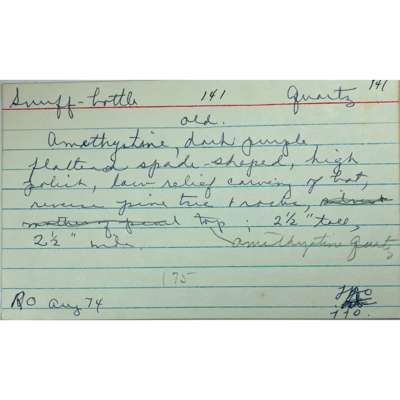 Snuff-bottle 141 Quartz 141
old.
Amethystine, dark purple
flattend spade-shaped, high
polish, low relief carving of bat,
reverse pine tree + rocks,
mother of pearl top; 2½" tall,
2½" wide. amethystine quartz
175
RO Aug 74
170.